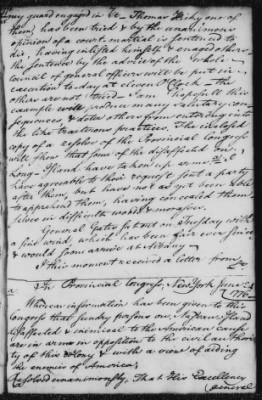 my guard engaged in to — Thomas Hickey one of
them, has been tried & by the unanimous
opinion of a court martial is sentenced to
die, having inlisted himself & engaged others
the sentence by the advice of the whole
Council of general officers will be put in
execution to day at eleven OClock — The
others are not tried — I am hopefull this
example will produce many salutary con-
sequences & deter others from entering into
the like traiterous practices. The inclosed
copy of a resolve of the Provincial Congress
will shew that some of the disaffected on
Long-Island have taken up arms
have agreeable to their request sent a party
after them, but have not as yet been able
to apprehend them, having concealed them
selves in different woods & morasses.
General Gates set out on Tuesday with
a fine wind, which has been fair ever since
& would soon arrive at Albany —
I this moment received a letter from
In Provincial Congress, New York June
1776
Whereas information has been given to this
Congress that sundry persons on Nassau Island
disaffected & inimical to the American cause
are in arms in opposition to the civil authori
ty of this Colony & with a view of aiding
the enemies of America,
Resolved unanimously, That His Excellency
General